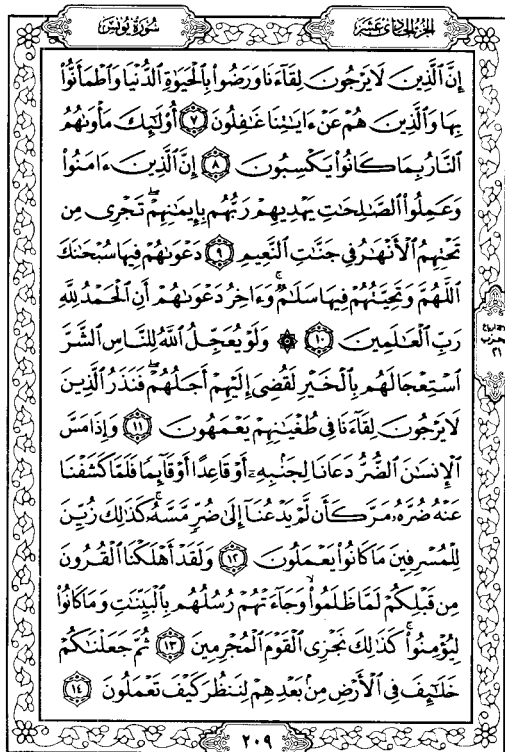 سُورَةُ يُونُسَ
الجُزْءُ الحَادِي عَشَرَ
إِنَّ ٱلَّذِينَ لَا يَرْجُونَ لِقَآءَنَا وَرَضُوا۟ بِٱلْحَيَوٰةِ ٱلدُّنْيَا وَٱطْمَأَنُّوا۟
بِهَا وَٱلَّذِينَ هُمْ عَنْ ءَايَٰتِنَا غَٰفِلُونَ ٧ أُو۟لَٰٓئِكَ مَأْوَىٰهُمُ
ٱلنَّارُ بِمَا كَانُوا۟ يَكْسِبُونَ ٨ إِنَّ ٱلَّذِينَ ءَامَنُوا۟
وَعَمِلُوا۟ ٱلصَّٰلِحَٰتِ يَهْدِيهِمْ رَبُّهُم بِإِيمَٰنِهِمْ ۖ تَجْرِى مِن
تَحْتِهِمُ ٱلْأَنْهَٰرُ فِى جَنَّٰتِ ٱلنَّعِيمِ ٩ دَعْوَىٰهُمْ فِيهَا سُبْحَٰنَكَ
ٱللَّهُمَّ وَتَحِيَّتُهُمْ فِيهَا سَلَٰمٌ ۚ وَءَاخِرُ دَعْوَىٰهُمْ أَنِ ٱلْحَمْدُ لِلَّهِ
رَبِّ ٱلْعَٰلَمِينَ ١٠ ۞ وَلَوْ يُعَجِّلُ ٱللَّهُ لِلنَّاسِ ٱلشَّرَّ
ٱسْتِعْجَالَهُم بِٱلْخَيْرِ لَقُضِىَ إِلَيْهِمْ أَجَلُهُمْ ۖ فَنَذَرُ ٱلَّذِينَ
لَا يَرْجُونَ لِقَآءَنَا فِى طُغْيَٰنِهِمْ يَعْمَهُونَ ١١ وَإِذَا مَسَّ
ٱلْإِنسَٰنَ ٱلضُّرُّ دَعَانَا لِجَنۢبِهِۦٓ أَوْ قَاعِدًا أَوْ قَآئِمًا فَلَمَّا كَشَفْنَا
عَنْهُ ضُرَّهُۥ مَرَّ كَأَن لَّمْ يَدْعُنَآ إِلَىٰ ضُرٍّ مَّسَّهُۥ ۚ كَذَٰلِكَ زُيِّنَ
لِلْمُسْرِفِينَ مَا كَانُوا۟ يَعْمَلُونَ ١٢ وَلَقَدْ أَهْلَكْنَا ٱلْقُرُونَ
مِن قَبْلِكُمْ لَمَّا ظَلَمُوا۟ ۙ وَجَآءَتْهُمْ رُسُلُهُم بِٱلْبَيِّنَٰتِ وَمَا كَانُوا۟
لِيُؤْمِنُوا۟ ۚ كَذَٰلِكَ نَجْزِى ٱلْقَوْمَ ٱلْمُجْرِمِينَ ١٣ ثُمَّ جَعَلْنَٰكُمْ
خَلَٰٓئِفَ فِى ٱلْأَرْضِ مِنۢ بَعْدِهِمْ لِنَنظُرَ كَيْفَ تَعْمَلُونَ ١٤
حزب
٢١
٢٠٩